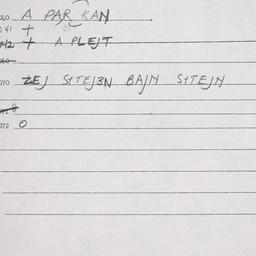 060 A PAR KAN
041 +
042 + A PLEJT
060
070 ZEJ SITEJ3N BAJN SITEJN
072 O